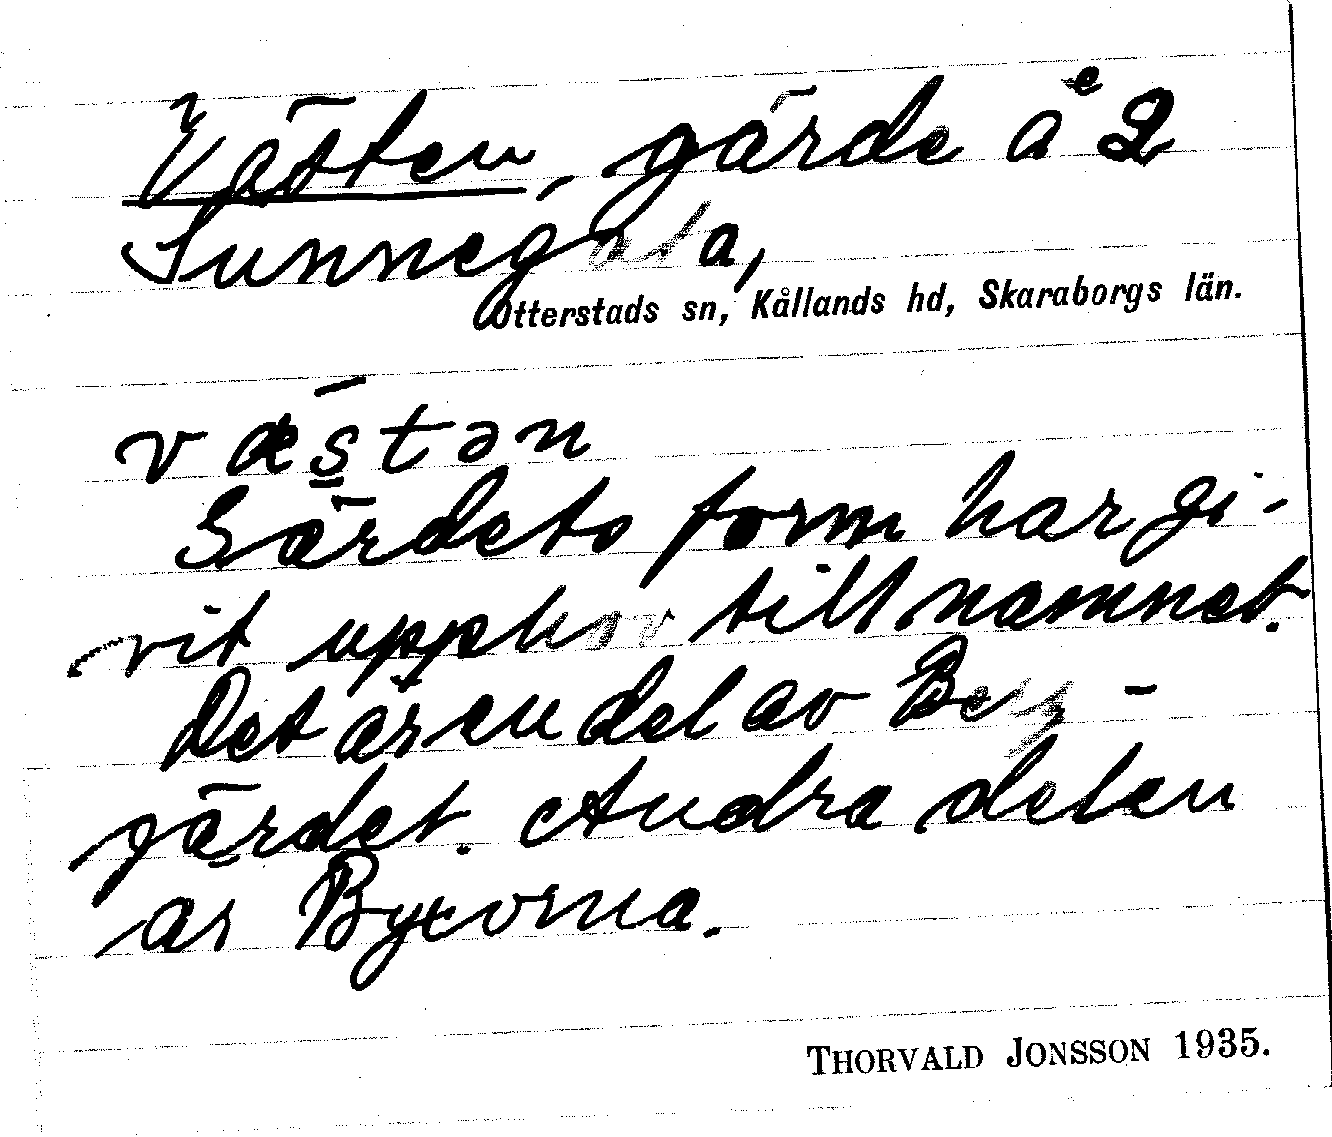 Västen, gärde å e2
Sunnegåta,
Otterstads sn, Kållands hd, Skaraborgs län.
væstən
Gärdets form har gi-
vit upphov till namnet.
Det är en del av Berg-
gärdet. Andra delen
är Byxorna.
THORVALD JONSSON 1935.